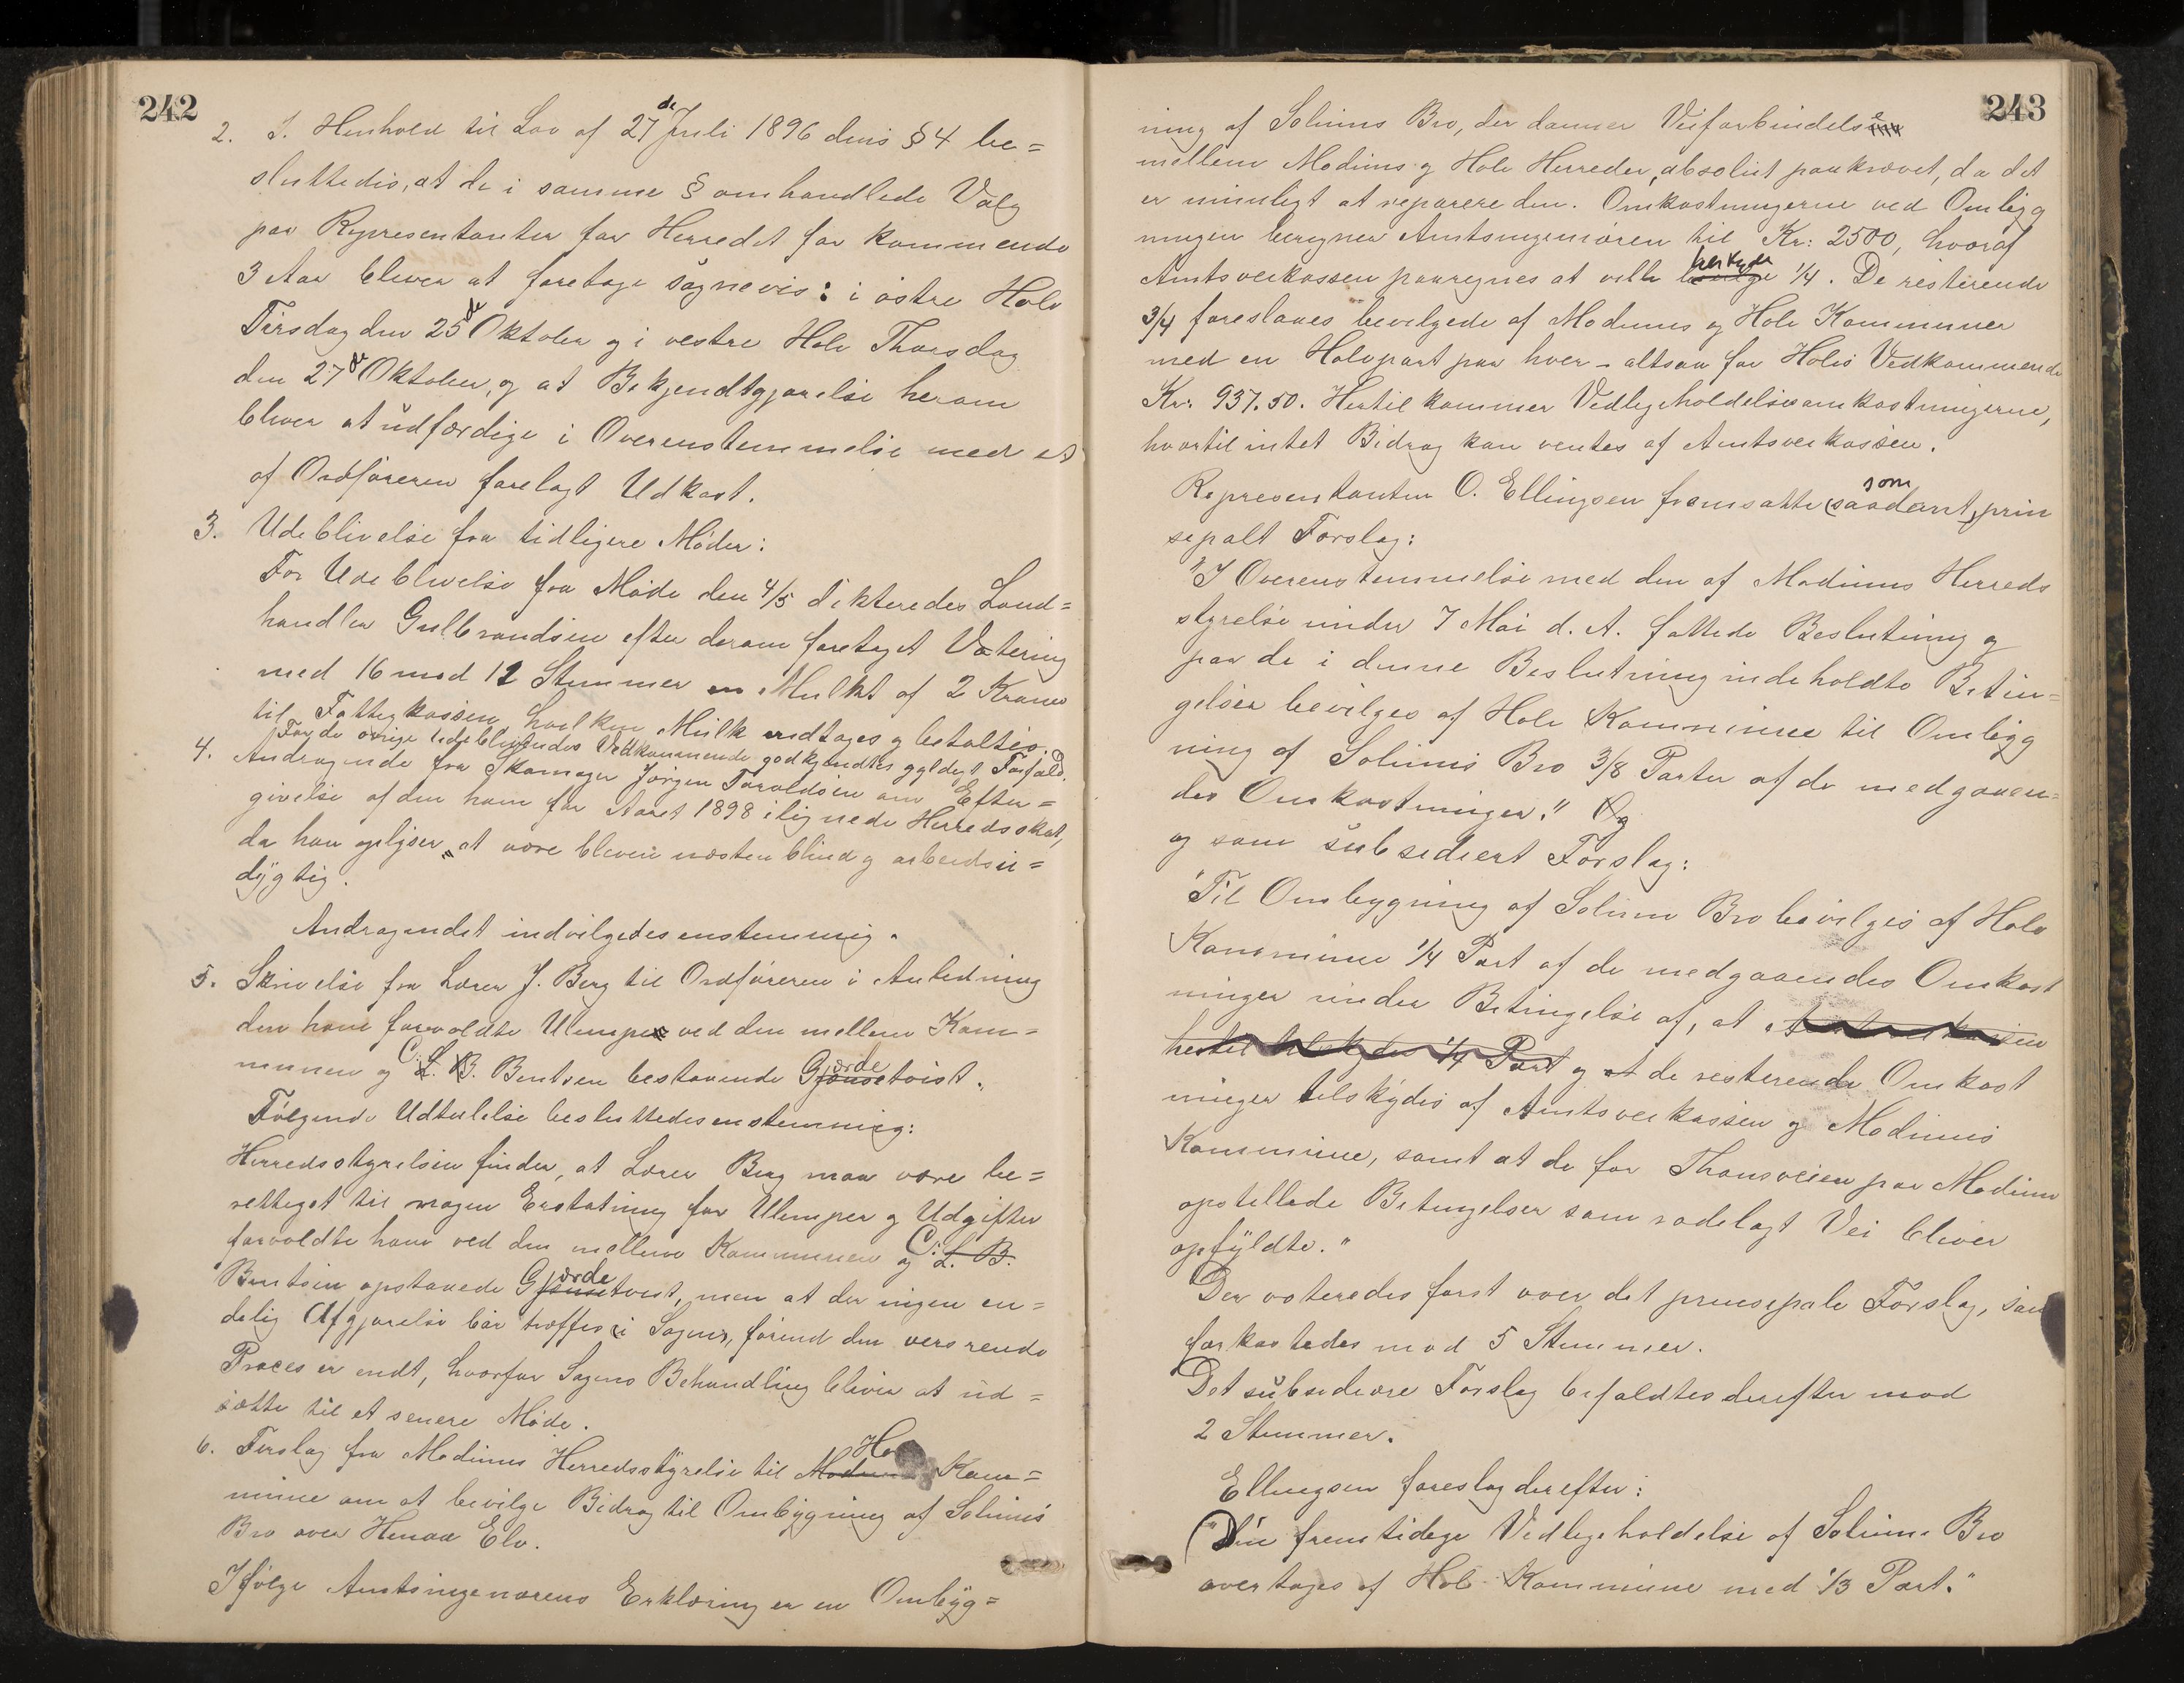 242
2. I Henhold til Lov af 27de Juli 1896 dens § 4 be=
sluttedes, at de i samme § omhandlede Valg
paa Representanter for Herredet for kommende
3 Aar bliver at foretage sognevis: i østre Hole
Tirsdag den 25de Oktober og i vestre Hole Thorsdag
den 27de Oktober, og at Bekjendtgjørelse herom
bliver at udfærdige i Overenstemmelse med et
af Ordføreren forelagt Udkast.
3. Udeblivelse fra tidligere Møder:
For Udeblivelse fra Møde den 4/5 dikteredes Land=
handler Gulbrandsen efter derom foretaget Votering
med 16 mod 12 Stemmer en Mulkt af 2 Kroner
til Fattigkassen, hvilken Mulk vedtoges og betaltes.
For de øvrige Udeblivendes Vedkommende godkjendtes gyldigt Forfald.
4. Andragende fra Skomager Jörgen Taraldsen om Efter=
givelse af den ham for Aaret 1898 ilignede Herredsskat,
da han oplyser „at være bleven næsten blind og arbeidsu=
dygtig.
Andragendet indvilgedes enstemmig.
5. Skrivelse fra Lærer J. Berg til Ordføreren i Anledning
den ham forvoldte Ulempe ved den mellem Kom=
munen og C. L. B. Bentsen bestaaende Gjærdetvist.
Følgende Udtalelse besluttedes enstemmig:
Herredsstyrelsen finder, at Lærer Berg maa være be=
rettiget til nogen Erstatning for Ulemper og Udgifter
forvoldte ham ved den mellem Kommunen og C. L. B.
Bentsen opstaaede Gjærdetvist, men at der ingen en=
delig Afgjørelse bør træffes i Sagen, førend den versrende
Proces er endt, hvorfor Sagens Behandling bliver at ud=
sætte til et senere Møde.
6. Forslag fra Modums Herredsstyrelse til Modums Ho Kom=
mune om at bevilge Bidrag til Ombygning af Solums
Bro over Henaa Elv.
Ifølge Amtsingeniørens Erklæring er en Ombyg=
243
ning af Solums Bro, der danner Veiforbindelse
mellem Modums og Hole Herreder, absolut paakrævet, da det
er umuligt at reparere den. Omkostningerne ved Omlæg
ningen beregner Amtsingeniøren til Kr: 2500, hvoraf
Amtsveikassen paaregnes at ville bevilge 1/4. De resterende
3/4 foreslaaes bevilgede af Modums og Hole Kommuner
med en Halvpart paa hver – altsaa for Holes Vedkommende
Kr. 937.50. Hertil kommer Vedligeholdelsesomkostningerne,
hvortil intet Bidrag kan ventes af Amtsveikassen.
Representanten O. Ellingsen fremsatte (som saadant) prin
sepalt Forslag:
"I Overenstemmelse med den af Modums Herreds
styrelse under 7 Mai d. A. fattede Beslutning og
paa de i denne Beslutning indeholdte Betin=
gelser bevilges af Hole Kommune til Omlæg
ning af Solums Bro 3/8 Parter af de medgaaen=
des Omkostninger." Og
og som subsediært Forslag:
"Til Ombygning af Solum Bro bevilges af Hole
Kommune 1/4 Part af de medgaaendes Omkost
ninger under Betingelse af, at Amtsveikassen
hertil 1/4 Part og at de resterende Omkost
ninger tilskydes af Amtsveikassen og Modums
Kommune, samt at de for Thonsveien paa Modum
opstillede Betingelser som rodelagt Vei bliver
opfyldte."
Der voteredes først over det prinsepale Forslag, som
forkastedes mod 5 Stemmer.
Det subsediære Forslag bifaldtes derefter mod
2 Stemmer.
Ellingsen foreslog derefter:
"Den fremtidige Vedligeholdelse af Solums Bro
overtages af Hole Kommune med 1/3 Part."